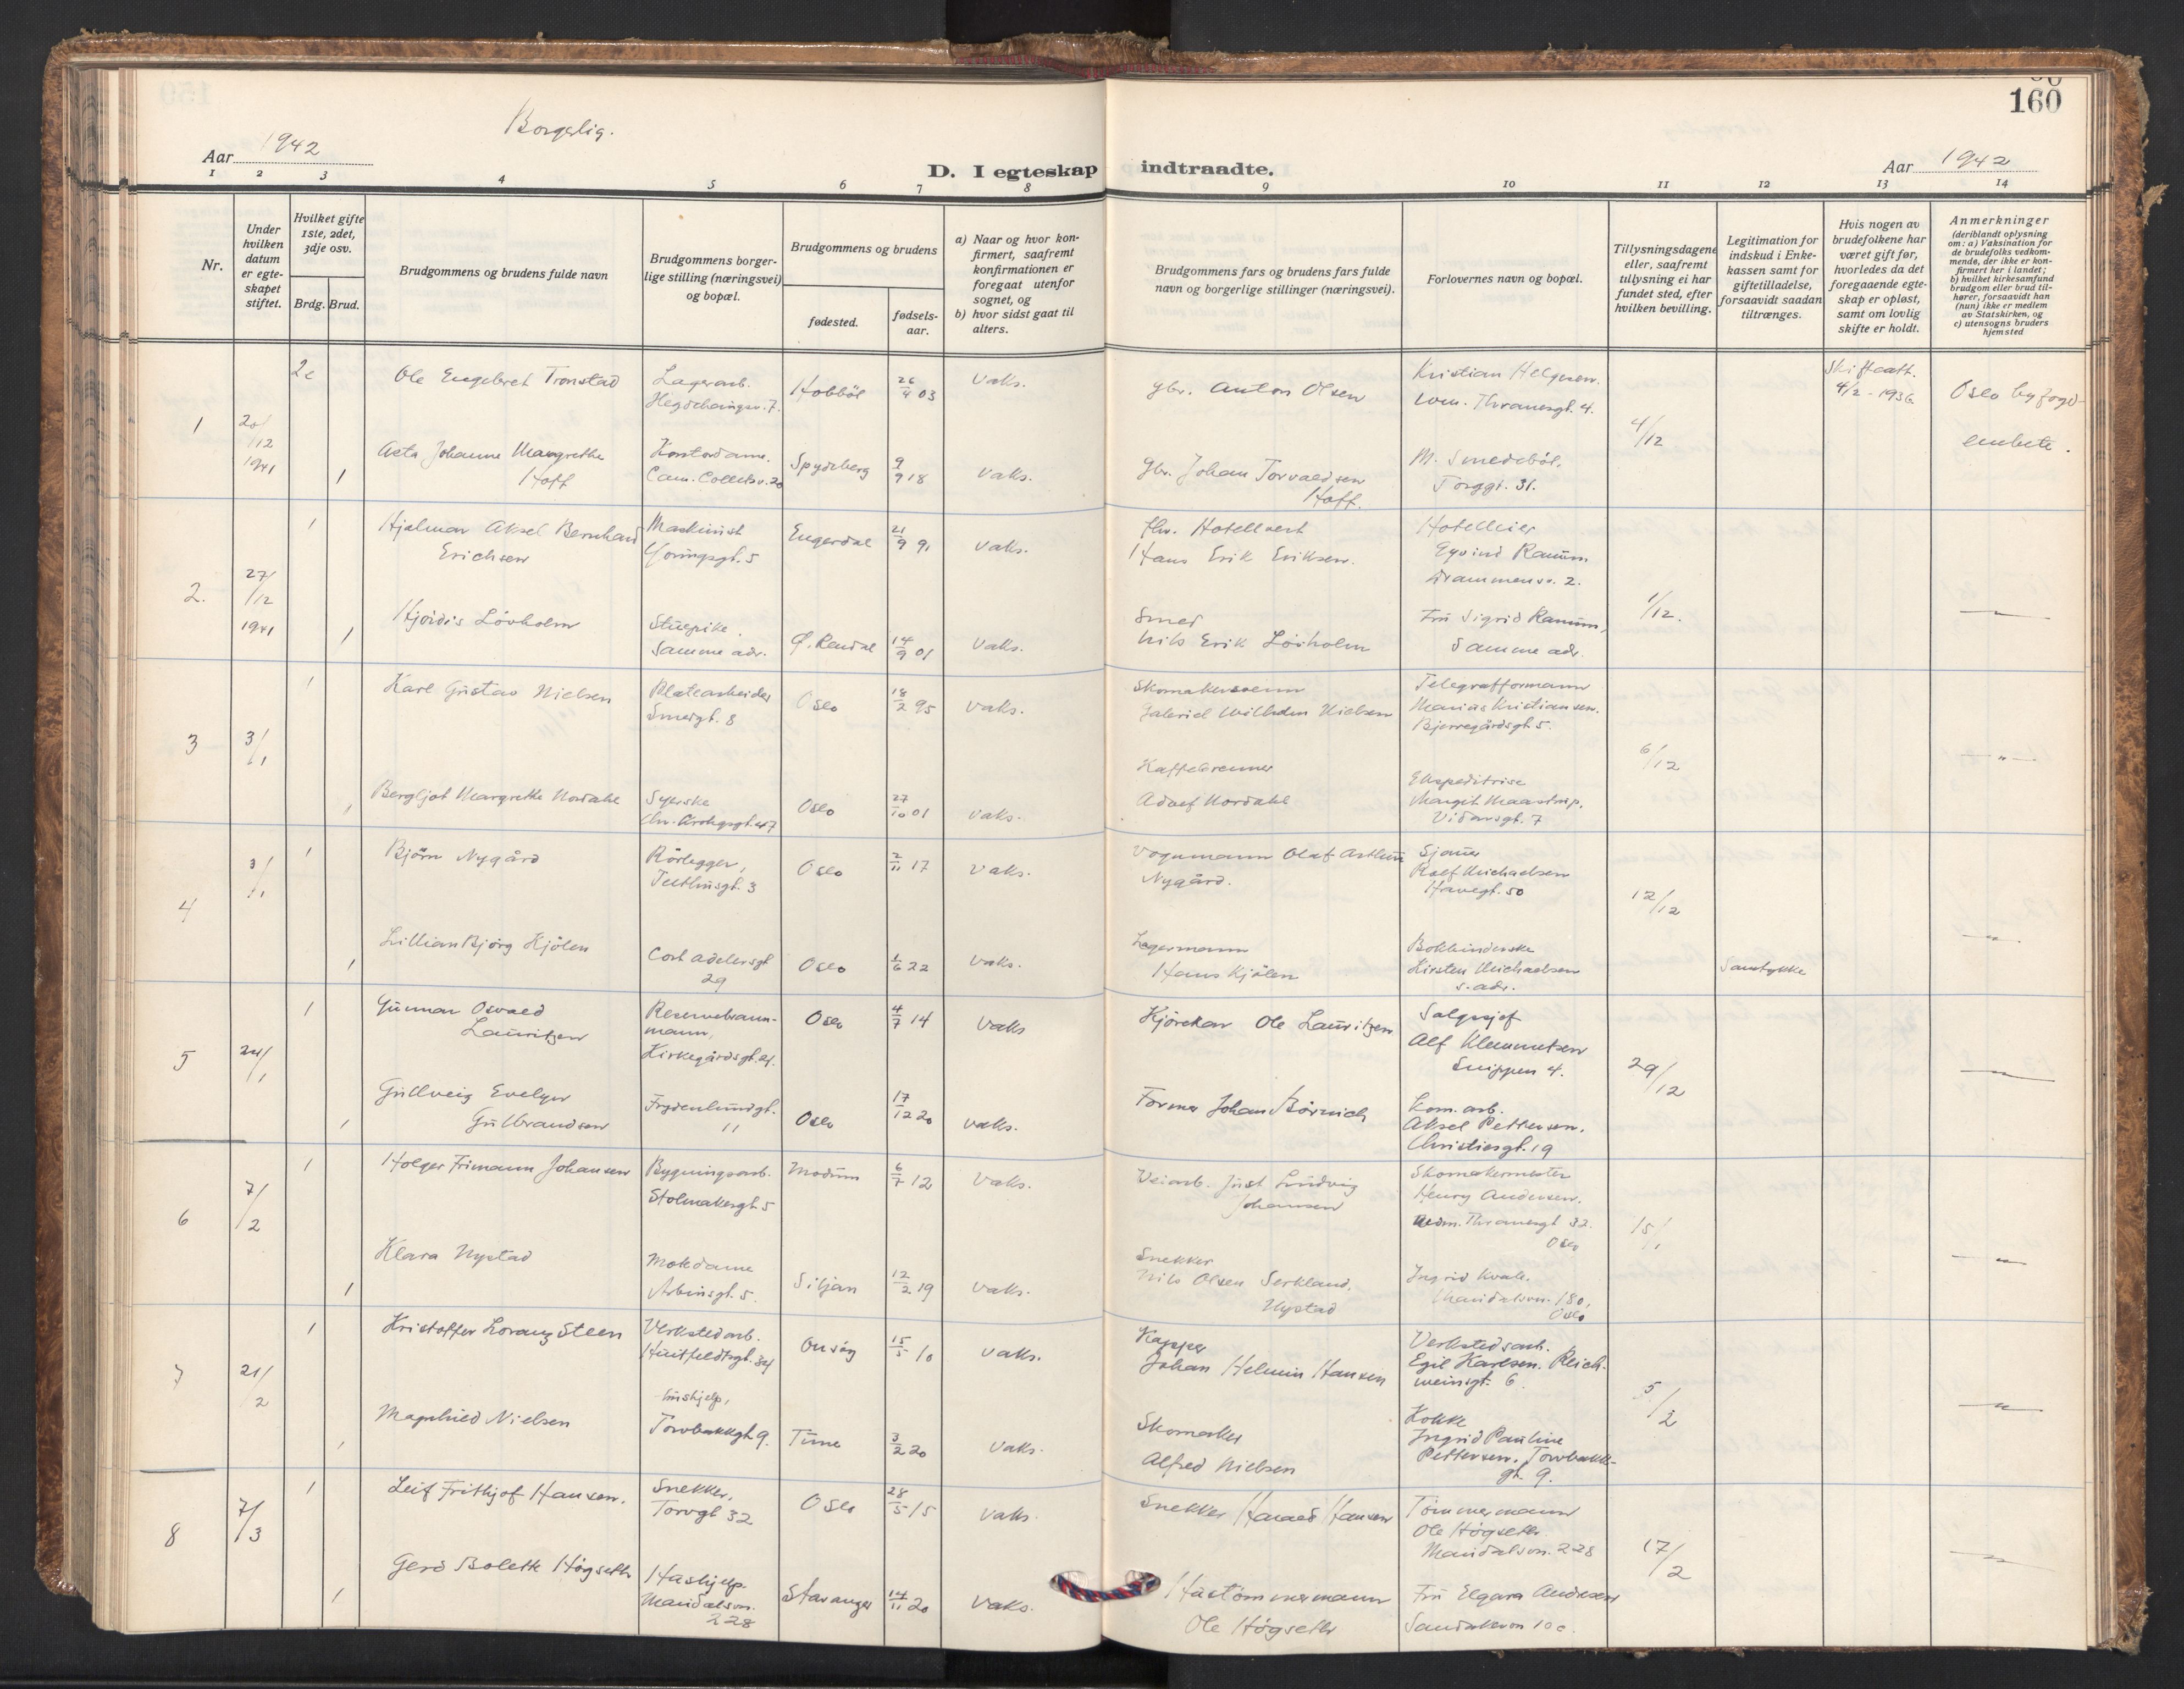 160
Borgerlig.
Aar 1942
D. I egteskap indtraadte.
Aar 1942
1 2 3 4 5 6 7 8 9 10 11 12 13 14
Nr.
Under hvilken datum er egteskapet stiftet.
Hvilket gifte 1ste, 2det, 3dje osv.
Brdg. Brud.
Brudgommens og brudens fulde navn
Brudgommens borgerlige stilling (næringsvei) og bopæl.
Brudgommens og brudens
fødested.
fødselsaar.
a) Naar og hvor konfirmert, saafremt konfirmationen er foregaat utenfor sognet, og
b) hvor sidst gaat til alters.
Brudgommens fars og brudens fars fulde navn og borgerlige stillinger (næringsvei).
Forlovernes navn og bopæl.
Tillysningsdagene eller, saafremt tillysning ei har fundet sted, efter hvilken bevilling.
Legitimation for indskud i Enkekassen samt for giftetilladelse, forsaavidt saadan tiltrænges.
Hvis nogen av brudefolkene har været gift før, hvorledes da det foregaaende egteskap er opløst, samt om lovlig skifte er holdt.
Anmerkninger
(deriblandt oplysning om: a) Vaksination for de brudefolks vedkommende, der ikke er konfirmert her i landet;
b) hvilket kirkesamfund brudgom eller brud tilhører, forsaavidt han (hun) ikke er medlem av Statskirken, og
c) utensogns bruders hjemsted
1 20/12 1941
2e Ole Engebret Tronstad Lagerarb. Hegdehaugsv. 7. Hobböl 26/4 03 Vaks. Gbr. Anton Olsen Kristian Helgesen. Thranesgt. 4. 4/12 Skifteatt. 4/2 - 1936 Oslo byfogdembete.
1 Asta Johanne Margrethe Hoff Kontordame. Cam. Colletsv. 20 Spydeberg 9/9 18 Vaks. Gbr. Johan Torvaldsen Hoff. M. Smedsböl. Torggt. 31.
2. 27/12 1941
1 Hjalmar Aksel Bernhard Erichsen Maskinist Youngsgt. 5 Engerdal 21/9 91 Vaks. Hotellvert Hans Erik Eriksen. Hotelleier Eyvind Ramm Drammensv. 2. 1/12. —
1 Hjördis Lövholm Stuepike. Samme adr. Ø. Rendal 14/9 01 Vaks. Smed Nils Erik Lövholm Fru Sigrid Ramm, Samme adr.
3 3/1
1 Karl Gustav Nielsen Platearbeider Smedgt. 8 Oslo 18/2 95 Vaks. Skomakersvenn Gabriel Wilhelm Nielsen Telegrafformann Marius Kristiansen. Bjerregårdsgt. 5. 6/12 — " —
1 Bergljot Margrethe Nordahl Syerske Chr. Kroghsgt. 47 Oslo 27/10 01 Vaks. Kaffebrenner Adolf Nordahl Ekspeditrise Margit Maastrup. Vidarsgt. 7
4 3/1
1 Björn Nygård Rörlegger, Tulthusgt. 3 Oslo 2/11 17 Vaks. Vognmann Olaf Arthur Nygård. Sjauer Rolf Michaelsen Havegt. 50 12/12 — " —
1 Lillian Bjørg Kjölen Cort Adelersgt 29 Oslo 1/6 22 Vaks. Lagermann Hans Kjölen Bokbinderske Kirsten Michaelsen s. adr. Samtykke
5 24/1
1 Gunnar Osvald Lauritzen Reservebrannmann, Kirkegårdsgt. 21. Oslo 4/7 14 Vaks Kjörekar Ole Lauritzen Salgssjef Alf Klemmetsen Snippen 4. 29/12 — " —
1 Gullveig Evelyn Gulbrandsen Frydenlundgt. 11 Oslo 17/12 20 Vaks. Former Johan Börnich Kom. arb. Aksel Pettersen. Christiesgt. 19
6 7/2
1 Holger Frimann Johansen Bygningsarb. Stolmakergt. 5 Modum 6/7 12 Vaks. Veiarb. Just Ludvig Johansen Skomakermester Henry Andersen. Thranesgt 32. Oslo 15/1 — " —
1 Klara Nystad Motedame Arbinsgt. 5. Siljan 12/2 19 Vaks. Snekker Nils Olsen Serkland, Nystad Ingrid Kvale. Maridalsvn. 180, Oslo
7 21/2
1 Kristoffer Lorang Steen Verkstedarb. Huitfeldtsgt. 34 Onsöy 15/5 10 Vaks. Kapper Johan Helmin Hansen Verkstedsarb. Egil Karlsen. Reichweinsgt. 6. 5/2 — " —
1 Magnhild Nielsen Hushjelp, Torvbakkgt 9. Time 3/2 20 Vaks. Skomaker Alfred Nielsen Kokke Ingrid Pauline Pettersen, Torvbakkgt. 9.
8 7/3
1 Leif Frithjof Hansen. Snekker, Torvgt 32 Oslo 28/5 15 Vaks. Snekker Harald Hansen Tömmermann Ole Högseth. Maridalsvn. 228 17/2 — " —
1 Gerd Bolette Högseth Hushjelp. Maridalsvn. 228 Stavanger 14/11 20 Vaks. Hustömmermann Ole Högseth Fru Elgara Andresen Sandakervn 10 c.